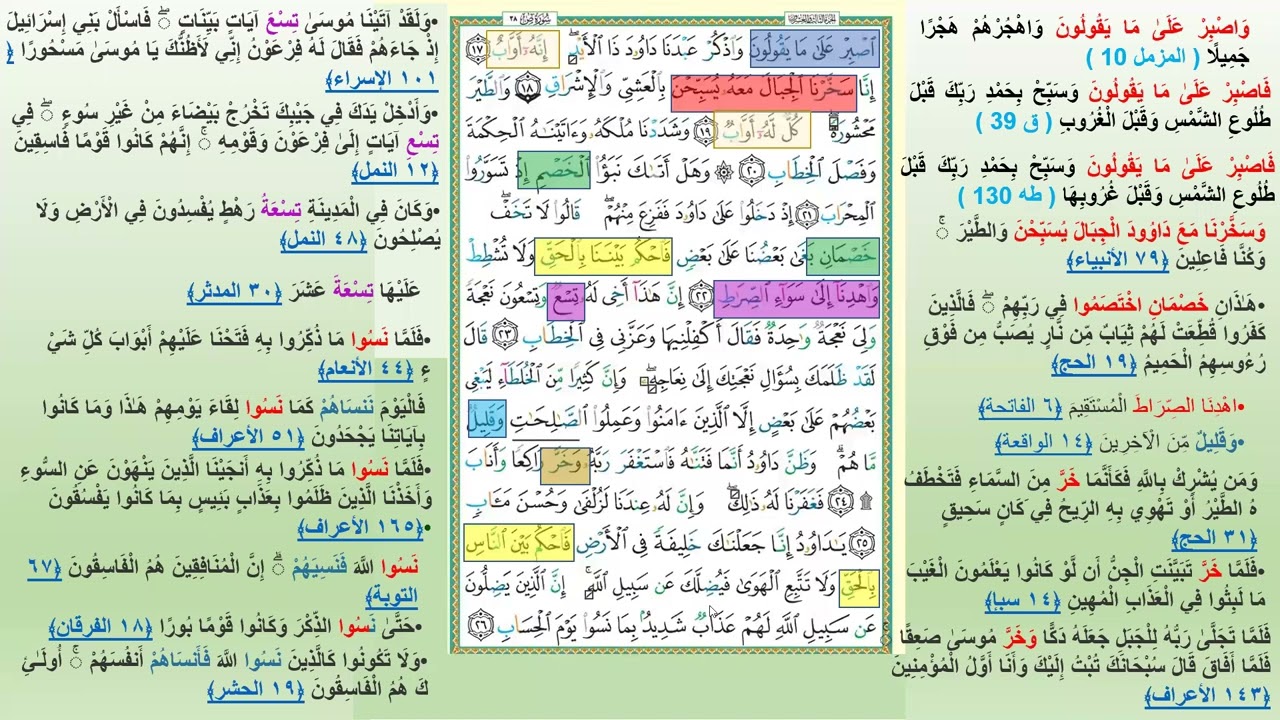 وَاصْبِرْ عَلَىٰ مَا يَقُولُونَ وَاهْجُرْهُمْ هَجْرًا
جَمِيلًا ( المزمل 10 )
فَاصْبِرْ عَلَىٰ مَا يَقُولُونَ وَسَبِّحْ بِحَمْدِ رَبِّكَ قَبْلَ
طُلُوعِ الشَّمْسِ وَقَبْلَ الْغُرُوبِ ( ق 39 )
فَاصْبِرْ عَلَىٰ مَا يَقُولُونَ وَسَبِّحْ بِحَمْدِ رَبِّكَ قَبْلَ
طُلُوعِ الشَّمْسِ وَقَبْلَ غُرُوبِهَا ( طه 130 )
وَسَخَّرْنَا مَعَ دَاوُودَ الْجِبَالَ يُسَبِّحْنَ وَالطَّيْرَ ۚ
وَكُنَّا فَاعِلِينَ ﴿٧٩ الأنبياء﴾
•هَـٰذَانِ خَصْمَانِ اخْتَصَمُوا فِي رَبِّهِمْ ۖ فَالَّذِينَ
كَفَرُوا قُطِّعَتْ لَهُمْ ثِيَابٌ مِّن نَّارٍ يُصَبُّ مِن فَوْقِ
رُءُوسِهِمُ الْحَمِيمُ ﴿١٩ الحج﴾
•اهْدِنَا الصِّرَاطَ الْمُسْتَقِيمَ ﴿٦ الفاتحة﴾
•وَقَلِيلٌ مِّنَ الْآخِرِينَ ﴿١٤ الواقعة﴾
وَمَن يُشْرِكْ بِاللَّهِ فَكَأَنَّمَا خَرَّ مِنَ السَّمَاءِ فَتَخْطَفُ
هُ الطَّيْرُ أَوْ تَهْوِي بِهِ الرِّيحُ فِي كَانٍ سَحِيقٍ
﴿٣١ الحج﴾
•فَلَمَّا خَرَّ تَبَيَّنَتِ الْجِنُّ أَن لَّوْ كَانُوا يَعْلَمُونَ الْغَيْبَ
مَا لَبِثُوا فِي الْعَذَابِ الْمُهِينِ ﴿١٤ سبإ﴾
فَلَمَّا تَجَلَّىٰ رَبُّهُ لِلْجَبَلِ جَعَلَهُ دَكًّا وَخَرَّ مُوسَىٰ صَعِقًا
فَلَمَّا أَفَاقَ قَالَ سُبْحَانَكَ تُبْتُ إِلَيْكَ وَأَنَا أَوَّلُ الْمُؤْمِنِينَ
﴿١٤٣ الأعراف﴾
سُورَةُ ص ٣٨
ٱصْبِرْ عَلَىٰ مَا يَقُولُونَ وَٱذْكُرْ عَبْدَنَا دَاوُۥدَ ذَا ٱلْأَيْدِ ۖ إِنَّهُۥٓ أَوَّابٌ ﴿١٧﴾
إِنَّا سَخَّرْنَا ٱلْجِبَالَ مَعَهُۥ يُسَبِّحْنَ بِٱلْعَشِىِّ وَٱلْإِشْرَاقِ ﴿١٨﴾ وَٱلطَّيْرَ
مَحْشُورَةً ۖ كُلٌّ لَّهُۥٓ أَوَّابٌ ﴿١٩﴾ وَشَدَدْنَا مُلْكَهُۥ وَءَاتَيْنَـٰهُ ٱلْحِكْمَةَ
وَفَصْلَ ٱلْخِطَابِ ﴿٢٠﴾ ۞ وَهَلْ أَتَىٰكَ نَبَؤُا۟ ٱلْخَصْمِ إِذْ تَسَوَّرُوا۟
ٱلْمِحْرَابَ ﴿٢١﴾ إِذْ دَخَلُوا۟ عَلَىٰ دَاوُۥدَ فَفَزِعَ مِنْهُمْ ۖ قَالُوا۟ لَا تَخَفْ ۖ
خَصْمَانِ بَغَىٰ بَعْضُنَا عَلَىٰ بَعْضٍ فَٱحْكُم بَيْنَنَا بِٱلْحَقِّ وَلَا تُشْطِطْ
وَٱهْدِنَآ إِلَىٰ سَوَآءِ ٱلصِّرَٰطِ ﴿٢٢﴾ إِنَّ هَـٰذَآ أَخِى لَهُۥ تِسْعٌ وَتِسْعُونَ نَعْجَةً
وَلِىَ نَعْجَةٌ وَٰحِدَةٌ فَقَالَ أَكْفِلْنِيهَا وَعَزَّنِى فِى ٱلْخِطَابِ ﴿٢٣﴾ قَالَ
لَقَدْ ظَلَمَكَ بِسُؤَالِ نَعْجَتِكَ إِلَىٰ نِعَاجِهِۦ ۖ وَإِنَّ كَثِيرًا مِّنَ ٱلْخُلَطَآءِ لَيَبْغِى
بَعْضُهُمْ عَلَىٰ بَعْضٍ إِلَّا ٱلَّذِينَ ءَامَنُوا۟ وَعَمِلُوا۟ ٱلصَّـٰلِحَـٰتِ وَقَلِيلٌ
مَّا هُمْ ۗ وَظَنَّ دَاوُۥدُ أَنَّمَا فَتَنَّـٰهُ فَٱسْتَغْفَرَ رَبَّهُۥ وَخَرَّ رَاكِعًا وَأَنَابَ
۩ ﴿٢٤﴾ فَغَفَرْنَا لَهُۥ ذَٰلِكَ ۖ وَإِنَّ لَهُۥ عِندَنَا لَزُلْفَىٰ وَحُسْنَ مَـَٔابٍ
﴿٢٥﴾ يَـٰدَاوُۥدُ إِنَّا جَعَلْنَـٰكَ خَلِيفَةً فِى ٱلْأَرْضِ فَٱحْكُم بَيْنَ ٱلنَّاسِ
بِٱلْحَقِّ وَلَا تَتَّبِعِ ٱلْهَوَىٰ فَيُضِلَّكَ عَن سَبِيلِ ٱللَّهِ ۚ إِنَّ ٱلَّذِينَ يَضِلُّونَ
عَن سَبِيلِ ٱللَّهِ لَهُمْ عَذَابٌ شَدِيدٌۢ بِمَا نَسُوا۟ يَوْمَ ٱلْحِسَابِ ﴿٢٦﴾
•وَلَقَدْ آتَيْنَا مُوسَىٰ تِسْعَ آيَاتٍ بَيِّنَاتٍ ۖ فَاسْأَلْ بَنِي إِسْرَائِيلَ
إِذْ جَاءَهُمْ فَقَالَ لَهُ فِرْعَوْنُ إِنِّي لَأَظُنُّكَ يَا مُوسَىٰ مَسْحُورًا ﴿
١٠١ الإسراء﴾
•وَأَدْخِلْ يَدَكَ فِي جَيْبِكَ تَخْرُجْ بَيْضَاءَ مِنْ غَيْرِ سُوءٍ ۖ فِي
تِسْعِ آيَاتٍ إِلَىٰ فِرْعَوْنَ وَقَوْمِهِ ۚ إِنَّهُمْ كَانُوا قَوْمًا فَاسِقِينَ
﴿١٢ النمل﴾
•وَكَانَ فِي الْمَدِينَةِ تِسْعَةُ رَهْطٍ يُفْسِدُونَ فِي الْأَرْضِ وَلَا
يُصْلِحُونَ ﴿٤٨ النمل﴾
عَلَيْهَا تِسْعَةَ عَشَرَ ﴿٣٠ المدثر﴾
•فَلَمَّا نَسُوا مَا ذُكِّرُوا بِهِ فَتَحْنَا عَلَيْهِمْ أَبْوَابَ كُلِّ شَيْ
ءٍ ﴿٤٤ الأنعام﴾
فَالْيَوْمَ نَنسَاهُمْ كَمَا نَسُوا لِقَاءَ يَوْمِهِمْ هَـٰذَا وَمَا كَانُوا
بِآيَاتِنَا يَجْحَدُونَ ﴿٥١ الأعراف﴾
•فَلَمَّا نَسُوا مَا ذُكِّرُوا بِهِ أَنجَيْنَا الَّذِينَ يَنْهَوْنَ عَنِ السُّوءِ
وَأَخَذْنَا الَّذِينَ ظَلَمُوا بِعَذَابٍ بَئِيسٍ بِمَا كَانُوا يَفْسُقُونَ
•﴿١٦٥ الأعراف﴾
نَسُوا اللَّهَ فَنَسِيَهُمْ ۗ إِنَّ الْمُنَافِقِينَ هُمُ الْفَاسِقُونَ ﴿٦٧
التوبة﴾
•حَتَّىٰ نَسُوا الذِّكْرَ وَكَانُوا قَوْمًا بُورًا ﴿١٨ الفرقان﴾
•وَلَا تَكُونُوا كَالَّذِينَ نَسُوا اللَّهَ فَأَنسَاهُمْ أَنفُسَهُمْ ۚ أُولَـٰئِ
كَ هُمُ الْفَاسِقُونَ ﴿١٩ الحشر﴾